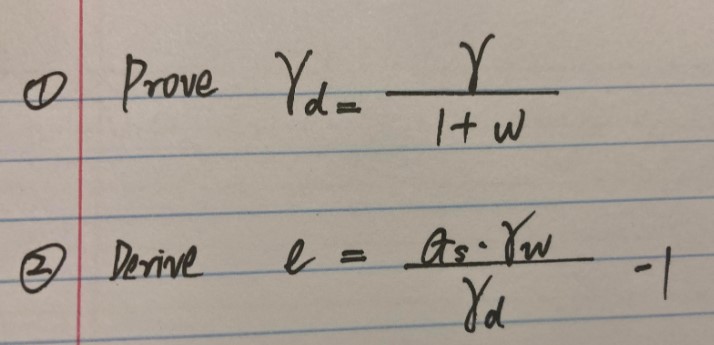 ① Prove γd = γ / (1 + w)
② Derive e = Gs · γw / γd - 1